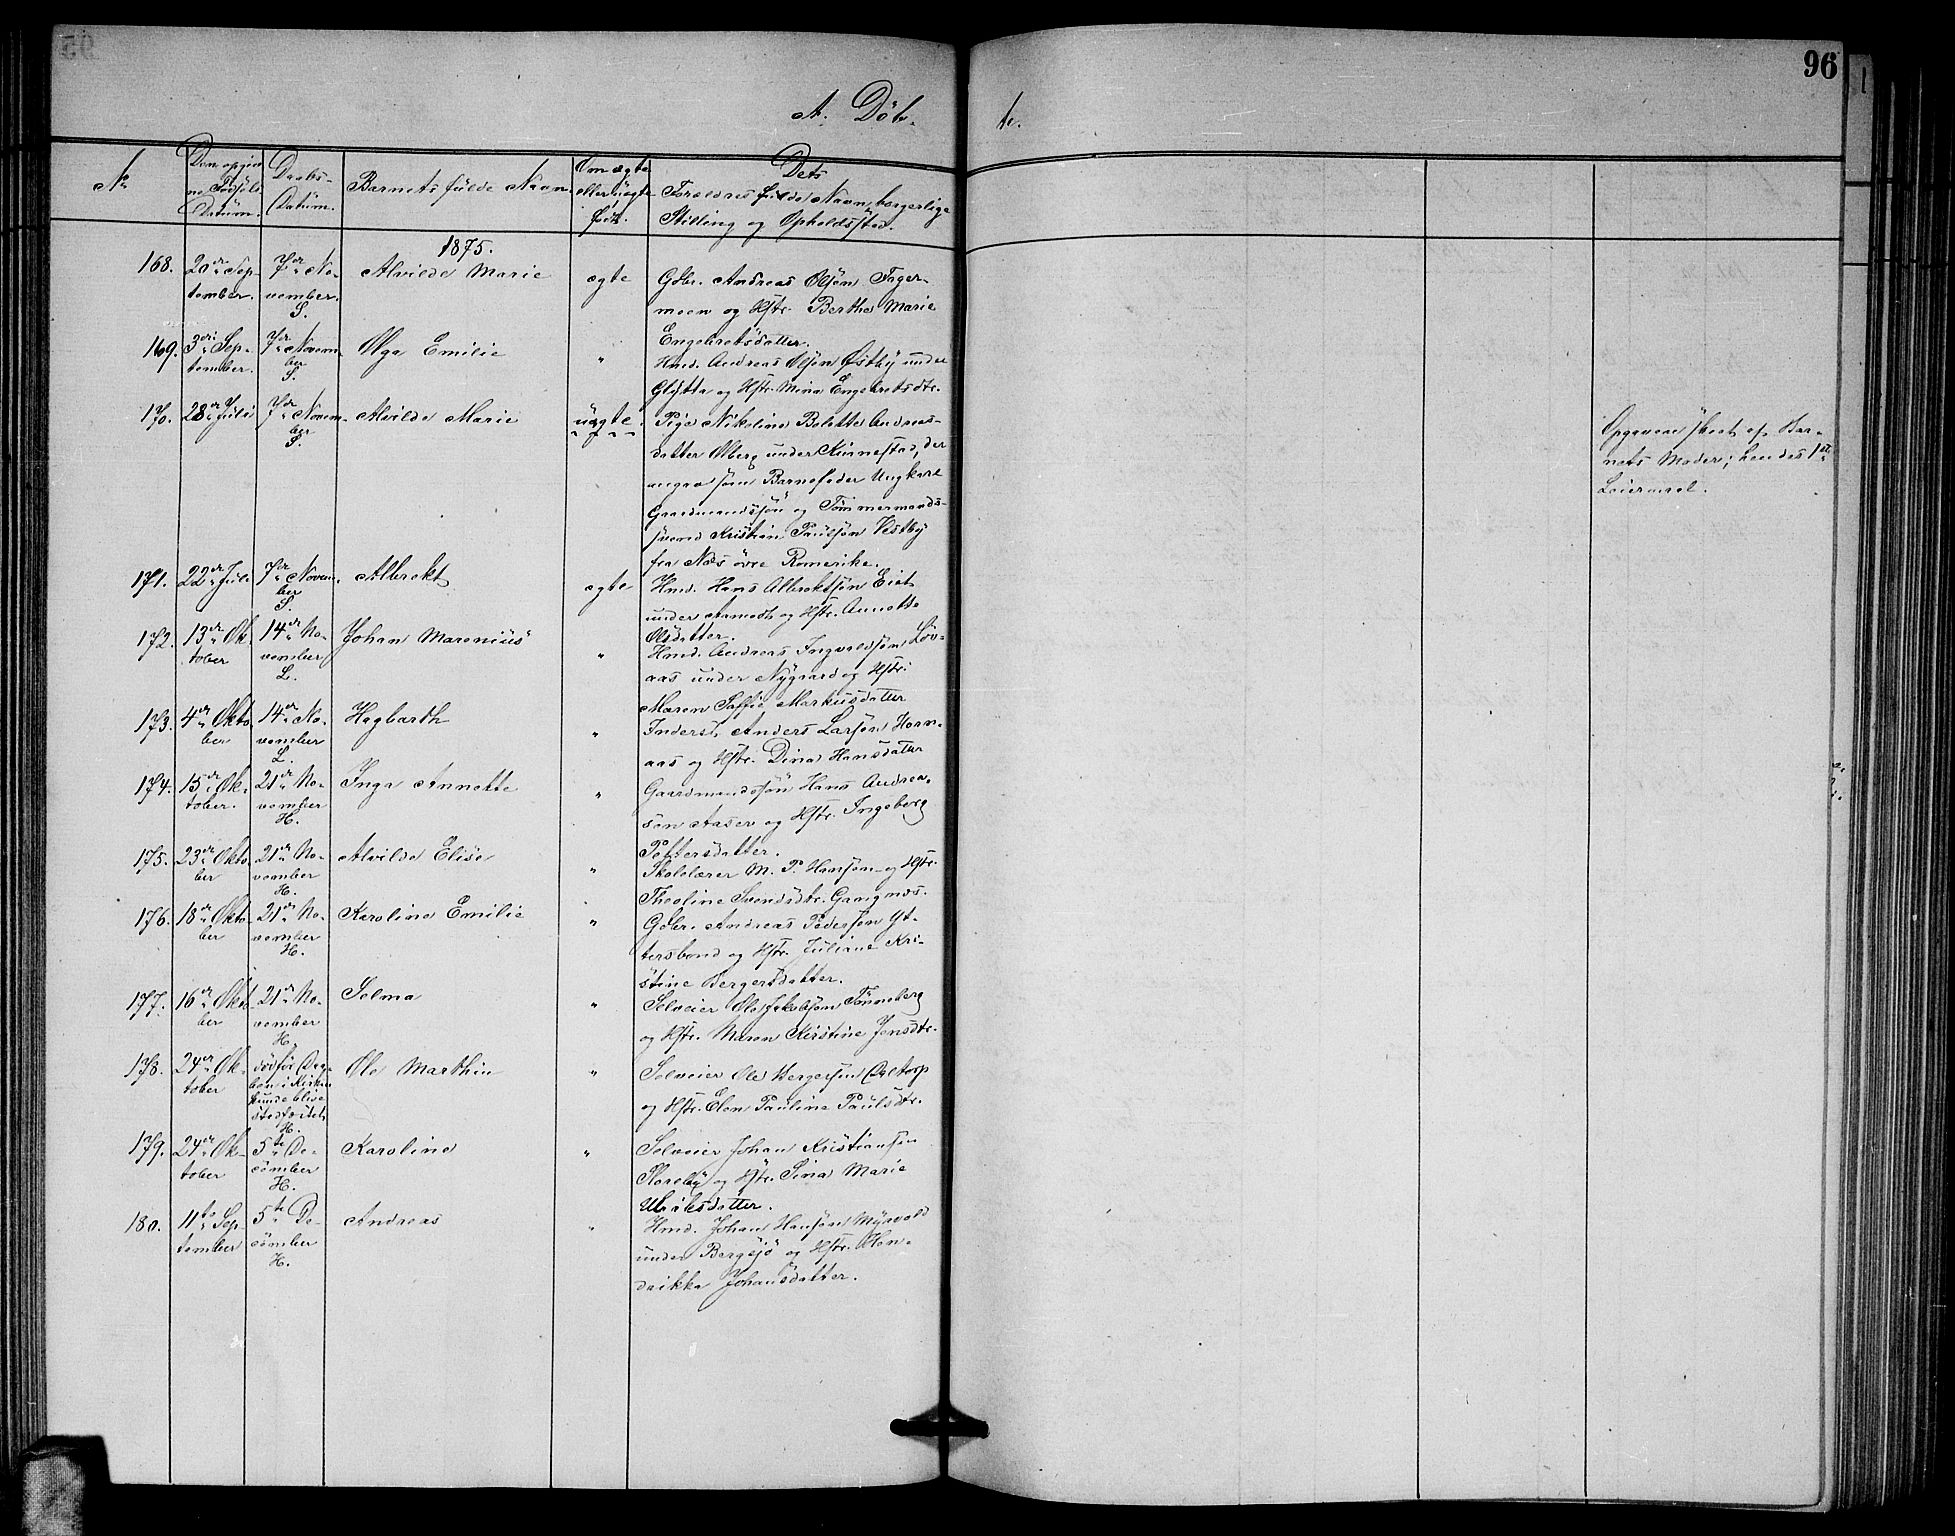 96
A. Döb- te.
No
Den opgivne Födsels Datüm.
Daabs-Datüm.
Barnets fülde Navn.
Om ægte eller üægte föd.
Dets
Forældres fülde Navn, borgerlige
Stilling og Opholdssted.
1875.
168. 20de September. 7de November. S. Alvilde Marie ægte Gdbr. Andreas Olsön Fager-
moen og Hstr. Berthe Marie
Engebretsdatter.
169. 3die September. 7de November S. Olga Emilie " Hmd. Andreas Olsön Østby under
Glötta og Hstr. Mina Engebretsdtr.
170. 28de Jüli 7de November S. Alvilde Marie üægte. Pige Nikoline Bolette Andreas-
datter Olberg under Kinnestad, der
angav som Barnefader Ungkarl
Gaardmandssön og Tömmermands-
svend Kristian Paülsön Vestby
fra Næs övre Romerike.
Opgaven skeet af Bar-
nets Moder; hendes 1ste
Leiermaal.
171. 22de Jüli 7de November S. Albrekt ægte Hmd. Hans Albrektsön Eiet
under Aamodt og Hstr. Annette
Olsdatter.
172. 13de Oktober 14de November L. Johan Mareniüs " Hmd. Andreas Ingvaldsön Löv-
aas under Nygaard og Hstr.
Maren Saffie Markusdatter
173. 4de Oktober 14de November L. Hagbarth " Inderst Anders Larsön Horn-
aas og Hstr. Dina Hansdatter
174. 15de Oktober. 21de November H. Inga Annette " Gaardmandssön Hans Andrea-
sen Aaser og Hstr. Ingeborg
Pettersdatter.
175. 23de Oktober 21de November H. Alvilde Elise " Skolelærer M. P. Hansön og Hstr.
Theoline Svendsdtr. Gangnæs.
176. 18de Oktober 21de November H. Karoline Emilie " Gdbr. Andreas Pedersön Yt-
tersbond og Hstr. Juliane Kri-
stine Bergersdatter.
177. 16de Oktober 21de November H. Selma " Selveier Ole Jakobsön Tönneberg
og Hstr. Maren Kirstine Jensdtr.
178. 24de Oktober död för Daaben i Kirken kunde blive stadfæstet H. Ole Marthin " Selveier Ole Bergersön Daltorp
og Hstr. Elen Pauline Paulsdtr.
179. 24de Oktober 5te December H. Karoline " Selveier Johan Kristiansen
Storeby og Hstr. Sina Marie
Ulriksdatter.
180. 11te September 5te December H. Andreas " Hmd. Johan Hansön Myrvold
under Bergsjö og Hstr. Hen-
drikka Johansdatter.